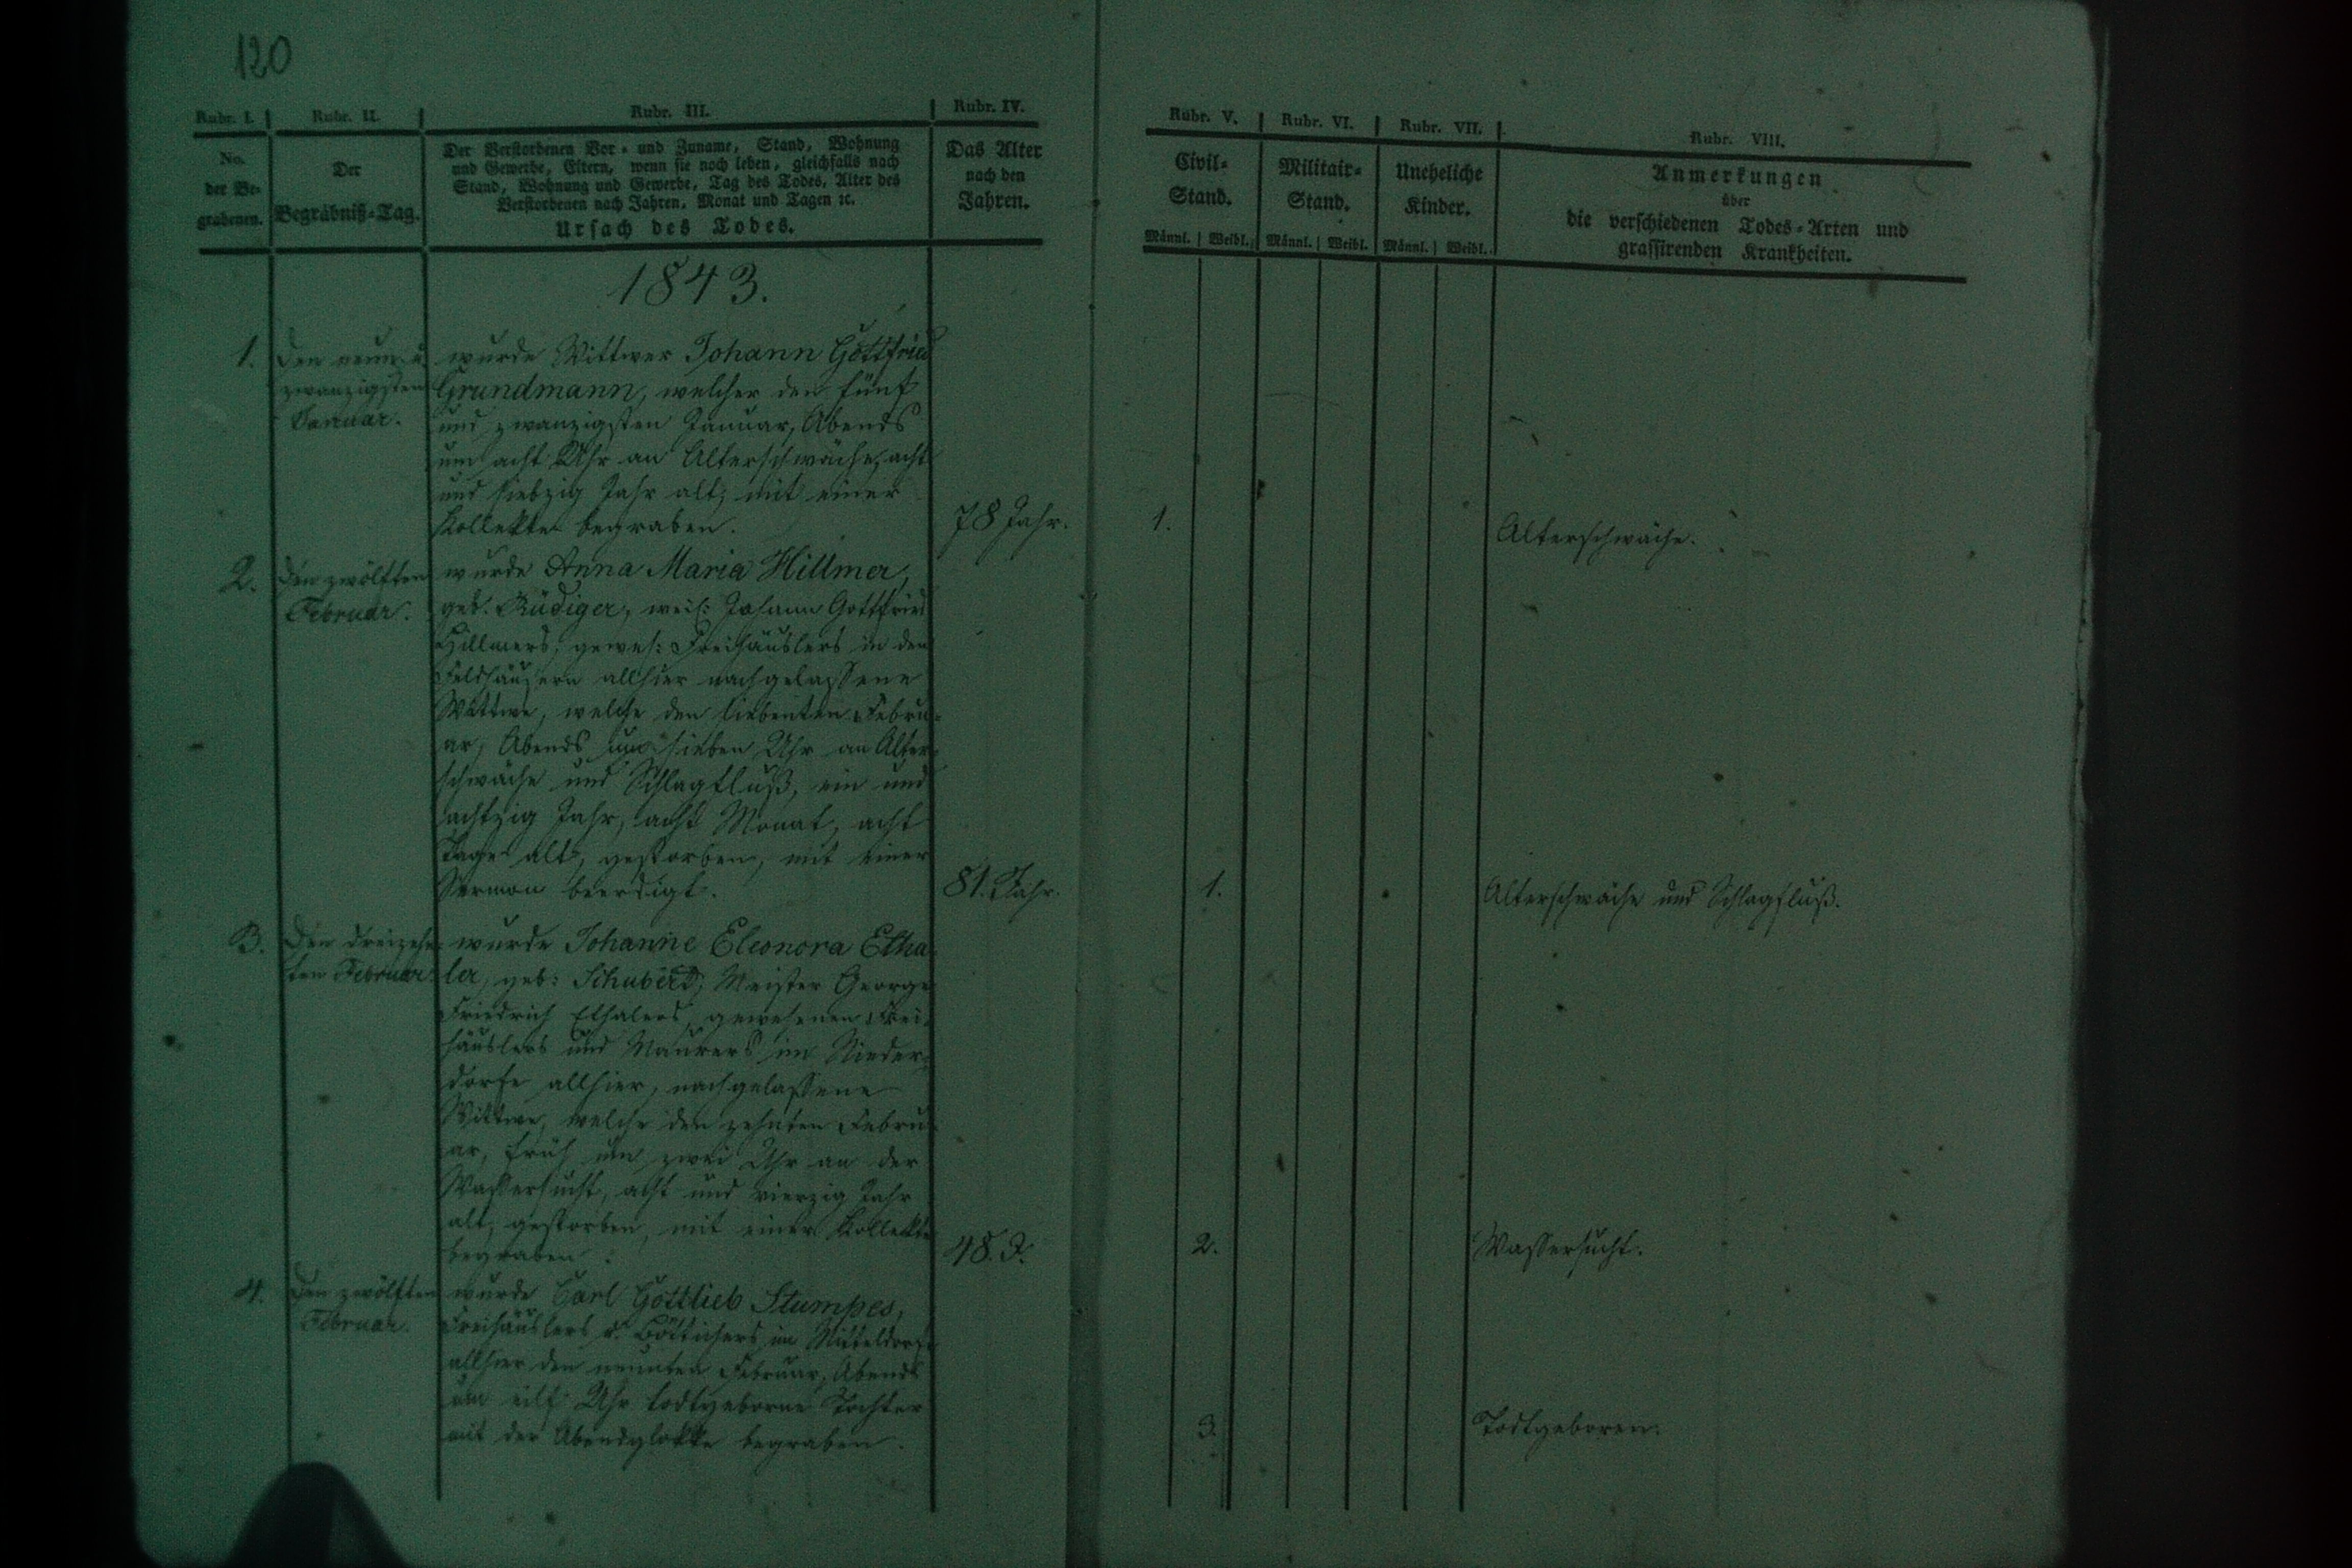 120
Rubr. I. Rubr. II. Rubr. III. Rubr. IV. Rubr. V. Rubr. VI. Rubr. VII. Rubr. VIII.
No.
der Be-
grabenen.
Der
Begräbniß-Tag.
Der Verstorbenen Vor- und Zuname, Stand, Wohnung
und Gewerbe, Eltern, wenn sie noch leben, gleichfalls nach
Stand, Wohnung und Gewerbe, Tag des Todes, Alter des
Verstorbenen nach Jahren, Monat und Tagen ꝛc.
Ursach des Todes.
Das Alter
nach den
Jahren.
Civil-
Stand.
Männl. Weibl.
Militair-
Stand.
Männl. Weibl.
Uneheliche
Kinder.
Männl. Weibl.
Anmerkungen
über
die verschiedenen Todes-Arten und
grassirenden Krankheiten.
1843.
1.
Den neun u
zwanzigsten
Januar.
wurde Wittwer Johann Gottfried
Grundmann, welcher den fünf
und zwanzigsten Januar, Abends
um acht Uhr an Alterschwäche, acht
und siebzig Jahr alt, mit einer
Kollekte begraben.
78 Jahr.
1.
Alterschwäche.
2.
Den zwölften
Februar.
wurde Anna Maria Hillmer,
geb. Rüdiger, weil: Johann Gottfried
Hillmers, gewes: Freihäuslers in den
Feldhäusern allhier nachgelassene
Wittwe, welche den siebenten Febru-
ar, Abends um sieben Uhr an Alter-
schwäche und Schlagfluß, ein und
achtzig Jahr, acht Monat, acht
Tage alt, gestorben, mit einer
Sermon beerdigt.
81. Jahr.
1.
Alterschwäche und Schlagfluß.
3.
Den dreizehn-
ten Februar
wurde Johanne Eleonora Etha-
ler, geb: Schubert, Meister George
Friedrich Ethalers, gewesenen Frei-
häuslers und Maurers im Nieder-
dorfe allhier, nachgelassene
Wittwe, welche den zehnten Febru-
ar, früh um zwei Uhr an der
Wassersucht, acht und vierzig Jahr
alt, gestorben, mit einer Kollekte
begraben.
48. J.
2.
Wassersucht.
4.
Den zwölften
Februar.
wurde Carl Gottlieb Stumpes,
Freihäuslers u. Böttichers im Mitteldorfe
allhier den neunten Februar, Abends
um eilf Uhr todtgeborne Tochter
mit der Abendglokke begraben.
3.
Todtgeboren.